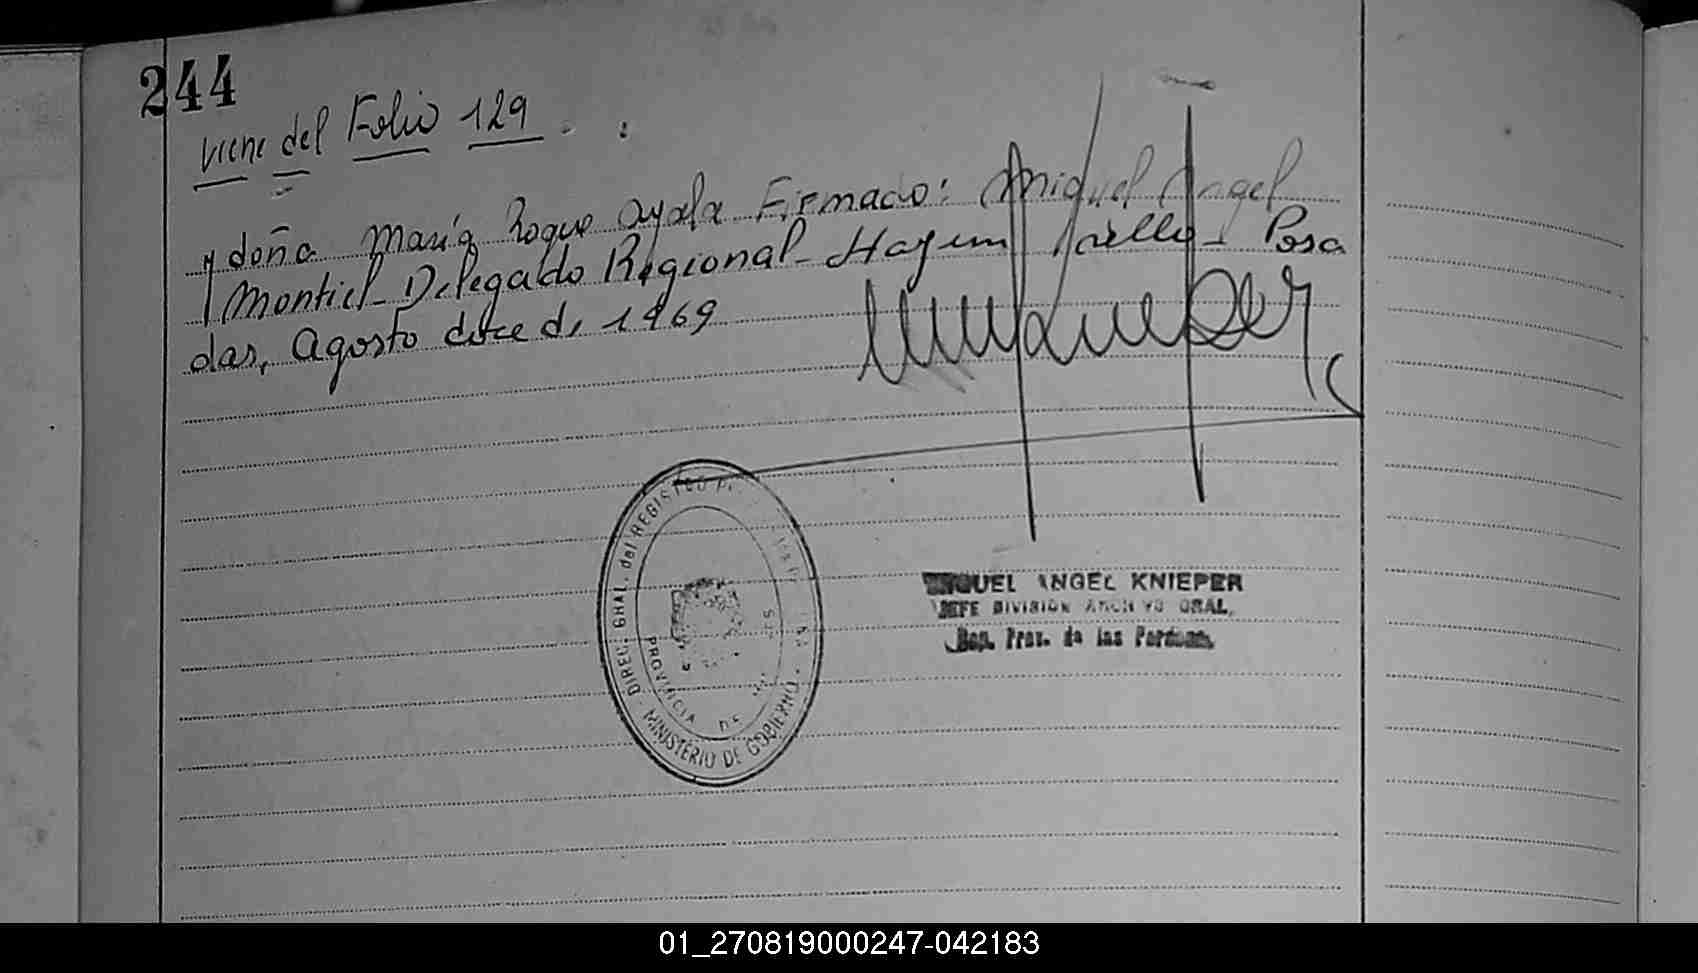 244
Viene del Folio 129 . :
y doña María Roque Ayala Firmado: Miguel Angel
Montiel - Delegado Regional - Hay un sello - Posa
das, Agosto doce de 1969
DIREC. GRAL. del REGISTRO
MINISTERIO DE GOBIERNO
PROVINCIA DE
MIGUEL ANGEL KNIEPER
JEFE DIVISION ARCHIVO GRAL.
Reg. Prov. de las Personas
01_270819000247-042183